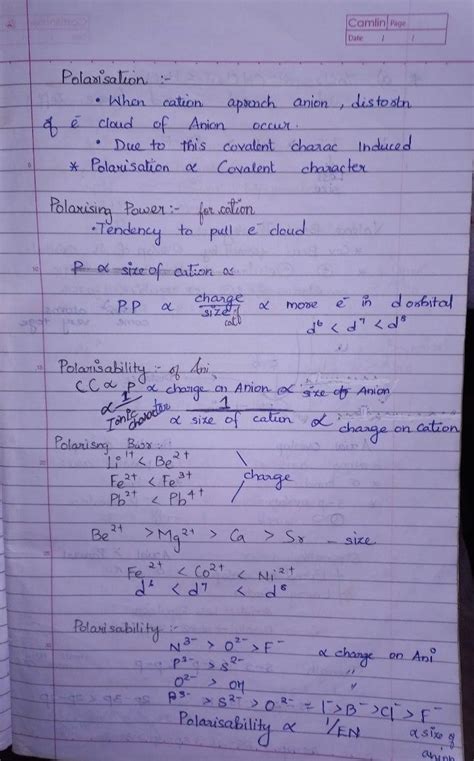 Camlin Page
Date / /
Polarisation :-
• When cation aproach anion, distostn
of e⁻ cloud of Anion occur.
• Due to this covalent charac Induced
* Polarisation ∝ Covalent character
Polarising Power:- for cation
• Tendency to pull e⁻ cloud
P ∝ size of cation ∝
P.P ∝ charge/size of cat ∝ more e⁻ in d orbital
d⁶ < d⁷ < d⁸
Polarisability :- of Ani
CC ∝ P ∝ charge on Anion ∝ size of Anion
∝ 1/Ionic character ∝ 1/size of cation ∝ charge on cation
Polarisng
Li¹⁺ < Be²⁺
Fe²⁺ < Fe³⁺ charge
Pb²⁺ < Pb⁴⁺
Be²⁺ > Mg²⁺ > Ca > Sr - size
Fe²⁺ < Co²⁺ < Ni²⁺
d⁶ < d⁷ < d⁸
Polarisability :-
N³⁻ > O²⁻ > F⁻ ∝ charge on Ani
P³⁻ > S²⁻ "
O²⁻ > OH "
P³⁻ > S²⁻ > O²⁻ = I⁻ > B⁻ > Cl⁻ > F⁻
Polarisability ∝ 1/EN ∝ size of
anion